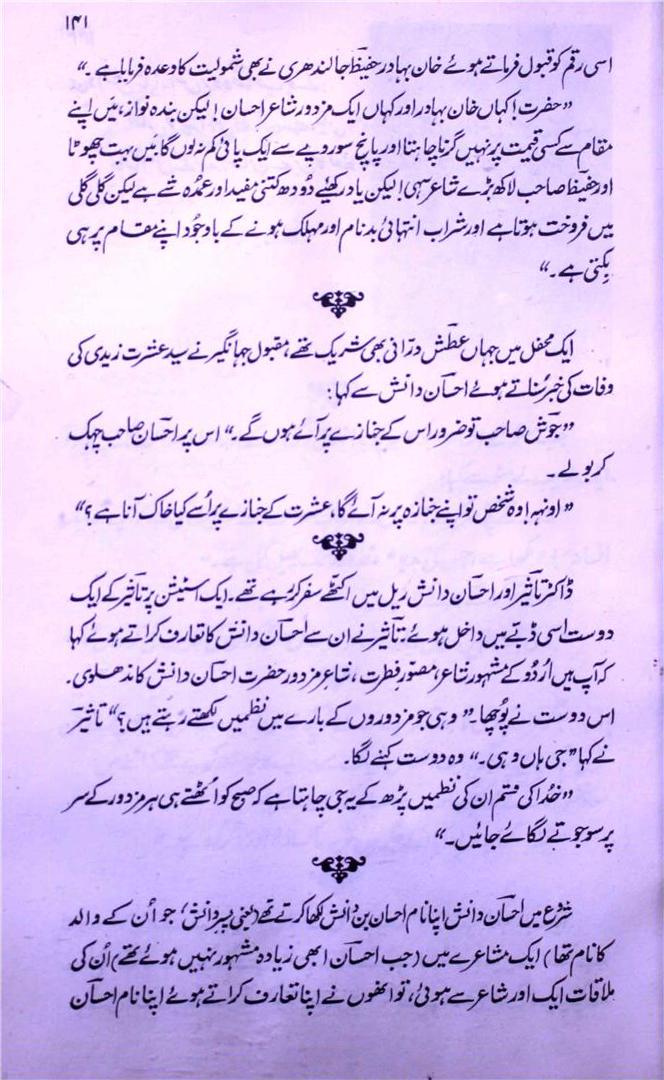 ۱۴۱
اسی رقم کو قبول فرماتے ہوئے خان بہادر حفیظ جالندھری نے بھی شمولیت کا وعدہ فرمایا ہے۔“
”حضرت! کہاں خان بہادر اور کہاں ایک مزدور شاعر احسان! لیکن بندہ نواز، میں اپنے
مقام سے کسی قیمت پر نہیں گرنا چاہتا اور پانچ سو روپے سے ایک پائی کم نہ لوں گا۔ میں بہت چھوٹا
اور حفیظ صاحب لاکھ بڑے شاعر سہی! لیکن یاد رکھیئے دُودھ کتنی مفید اور عمدہ شے ہے لیکن گلی گلی
میں فروخت ہوتا ہے اور شراب انتہائی بدنام اور مہلک ہونے کے باوجُود اپنے مقام پر ہی
بِکتی ہے۔“
ایک محفل میں جہاں عطش درّانی بھی شریک تھے، مقبول جہانگیر نے سید عشرت زیدی کی
وفات کی خبر سُناتے ہوئے احسان دانش سے کہا:
”جوش صاحب تو ضرور اس کے جنازے پر آئے ہوں گے۔“ اس پر احسان صاحب چہک
کر بولے۔
”اونہہ! وہ شخص تو اپنے جنازہ پر نہ آئے گا، عشرت کے جنازے پر اُسے کیا خاک آنا ہے؟“
ڈاکٹر تاثیر اور احسان دانش ریل میں اکٹھے سفر کر رہے تھے۔ ایک اسٹیشن پر تاثیر کے ایک
دوست اسی ڈبّے میں داخل ہوئے۔ تاثیر نے ان سے احسان دانش کا تعارف کراتے ہوئے کہا
کہ آپ ہیں اُردُو کے مشہور شاعر، مصوّرِ فطرت، شاعرِ مزدور حضرت احسان دانش کاندھلوی۔
اس دوست نے پُوچھا۔ ”وہی جو مزدوروں کے بارے میں نظمیں لکھتے رہتے ہیں؟“ تاثیر
نے کہا ”جی ہاں وہی۔“ وہ دوست کہنے لگا۔
”خُدا کی قسم ان کی نظمیں پڑھ کے یہ جی چاہتا ہے کہ صبح کو اُٹھتے ہی ہر مزدور کے سر
پر سو جوتے لگائے جائیں۔“
شرُوع میں احسان دانش اپنا نام احسان بن دانش لکھا کرتے تھے (یعنی پسرِ دانش، جو اُن کے والد
کا نام تھا) ایک مشاعرے میں (جب احسان ابھی زیادہ مشہور نہیں ہوئے تھے) اُن کی
ملاقات ایک اور شاعر سے ہوئی، تو انھوں نے اپنا تعارف کراتے ہوئے اپنا نام احسان